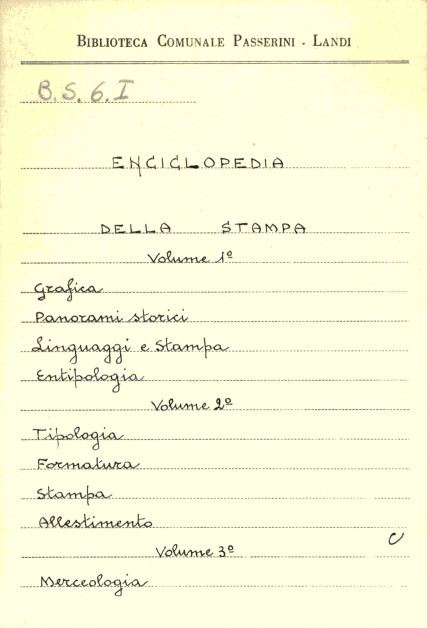 BIBLIOTECA COMUNALE PASSERINI - LANDI
B.S. 6. I
ENCICLOPEDIA
DELLA STAMPA
Volume 1º
Grafica
Panorami storici
Linguaggi e Stampa
Entipologia
Volume 2º
Tipologia
Formatura
Stampa
Allestimento
Volume 3º
Merceologia